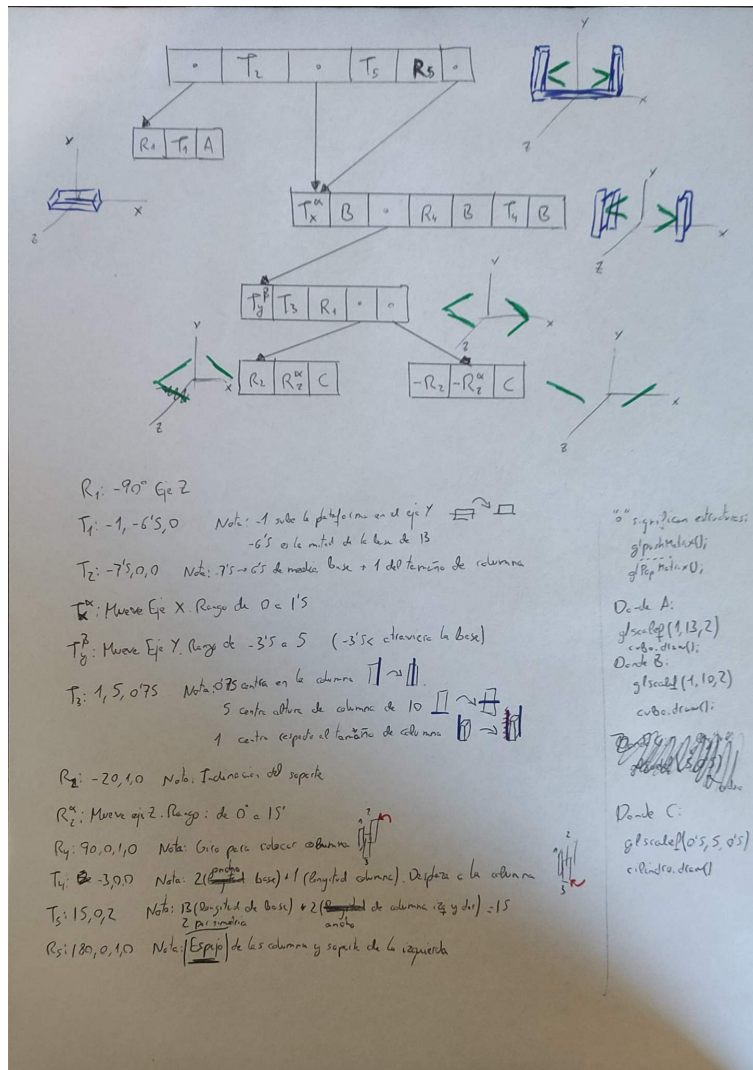 T₂ T₅ R₅
Y
X
Z
R₁ T₁ A
Y
X
Z
Tₓᵅ B R₄ B T₄ B
Y
X
Z
T_y^β T₃ R₁
Y
X
Z
Y
X
Z
R₂ R_z^α C
-R₂ -R_z^α C
Y
X
Z
R₁: -90° Eje Z
T₁: -1, -6'5, 0 Nota: -1 sube la plataforma en el eje Y
-6'5 es la mitad de la base de 13
T₂: -7'5, 0, 0 Nota: -7'5 → 6'5 de media base + 1 del tamaño de columna
Tₓᵅ: Mueve Eje X. Rango de 0 a 1'5
T_y^β: Mueve Eje Y. Rango de -3'5 a 5 (-3'5< atraviesa la base)
T₃: 1, 5, 0'75 Nota: 0'75 centra en la columna
5 centra altura de columna de 10
1 centra respecto al tamaño de columna
R₂: -20,1,0 Nota: Inclinación del soporte
R_z^α: Mueve eje Z. Rango: de 0° a 15°
R₄: 90,0,1,0 Nota: Giro para colocar columna
T₄: -3,0,0 Nota: 2(ancho base) + 1 (longitud columna). Desplaza a la columna
T₅: 15,0,2 Nota: 13 (longitud de base) + 2 (ancho de columna izq y der) = 15
2 por simetría
R₅: 180,0,1,0 Nota: Espejo de las columna y soporte de la izquierda
"°" significan estructuras:
glpushMatrix();
glPopMatrix();
Donde A:
glscalef(1,13,2)
cubo.draw();
Donde B:
glscalef(1,10,2)
cubo.draw();
Donde C:
glscalef(0'5, 5, 0'5)
cilindro.draw()